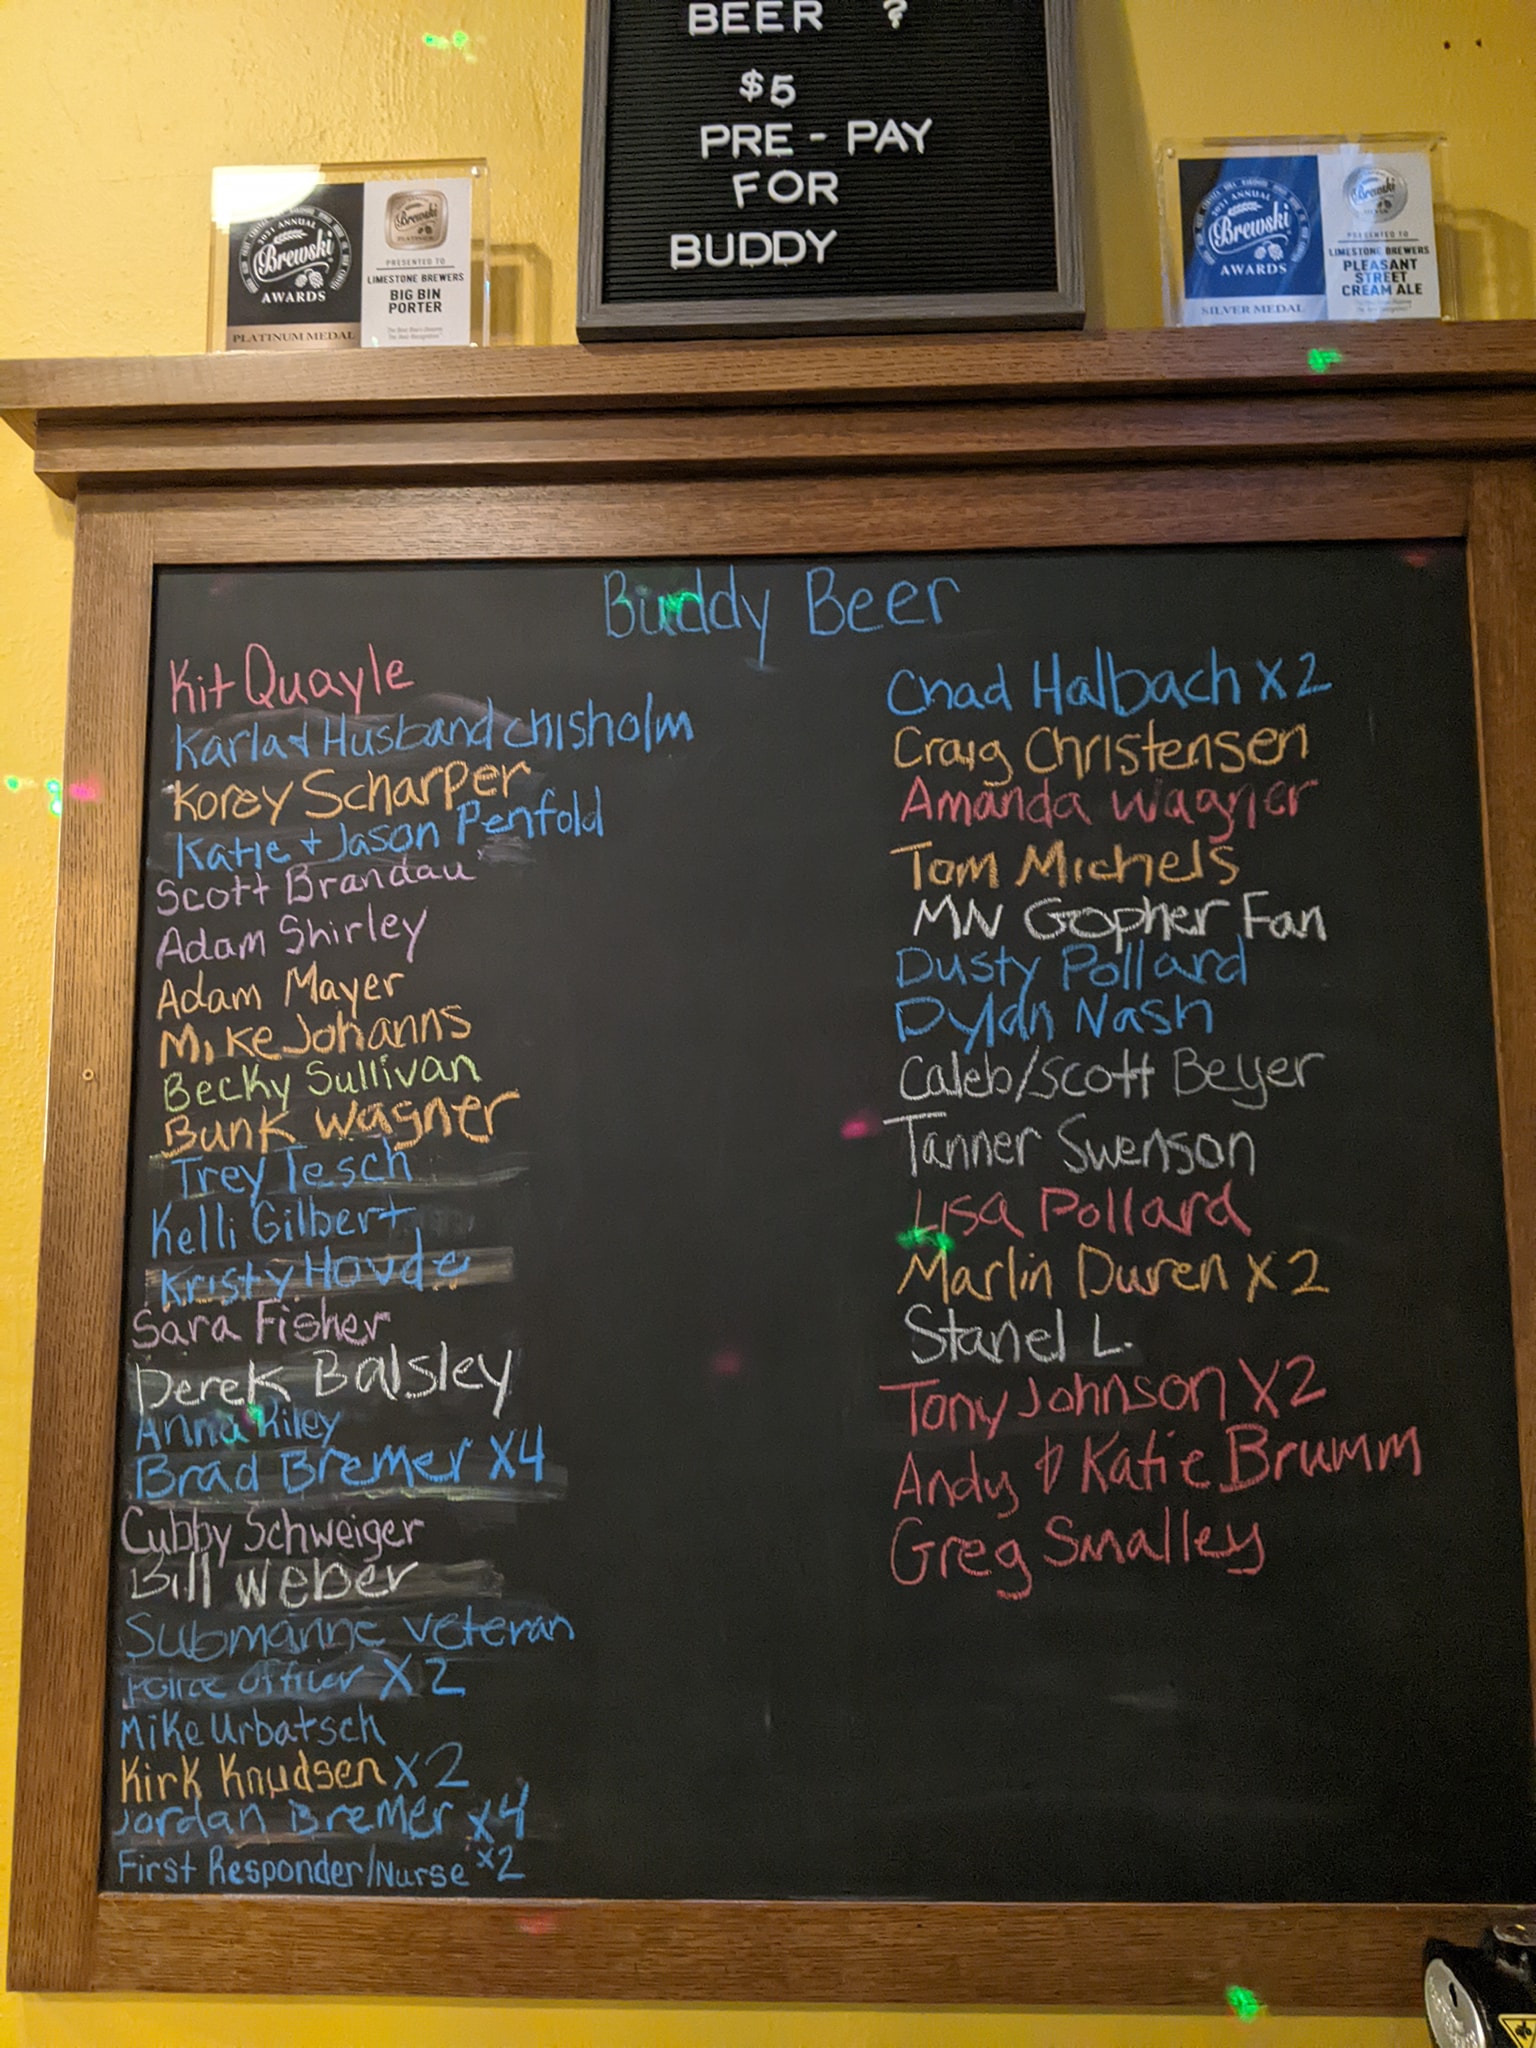 BEER ?
$5
PRE - PAY
FOR
BUDDY
2021 ANNUAL
Brewski
AWARDS
PLATINUM MEDAL
Brewski
PLATINUM
PRESENTED TO
LIMESTONE BREWERS
BIG BIN
PORTER
2021 ANNUAL
Brewski
AWARDS
SILVER MEDAL
Brewski
PRESENTED TO
LIMESTONE BREWERS
PLEASANT
STREET
CREAM ALE
Buddy Beer
Kit Quayle
Karla & Husband Chisholm
Korey Scharper
Katie + Jason Penfold
Scott Brandau
Adam Shirley
Adam Mayer
Mike Johanns
Becky Sullivan
Bunk Wagner
Trey Tesch
Kelli Gilbert
Kristy Hovde
Sara Fisher
Derek Balsley
Anna Riley
Brad Bremer X4
Cubby Schweiger
Bill Weber
Submarine veteran
Police Officer X2
Mike Urbatsch
Kirk Knudsen X2
Jordan Bremer X4
First Responder/Nurse X2
Chad Halbach X2
Craig Christensen
Amanda Wagner
Tom Michels
MN Gopher Fan
Dusty Pollard
Dylan Nash
Caleb/Scott Beyer
Tanner Swenson
Lisa Pollard
Marlin Duren X2
Stanel L.
Tony Johnson X2
Andy & Katie Brumm
Greg Smalley